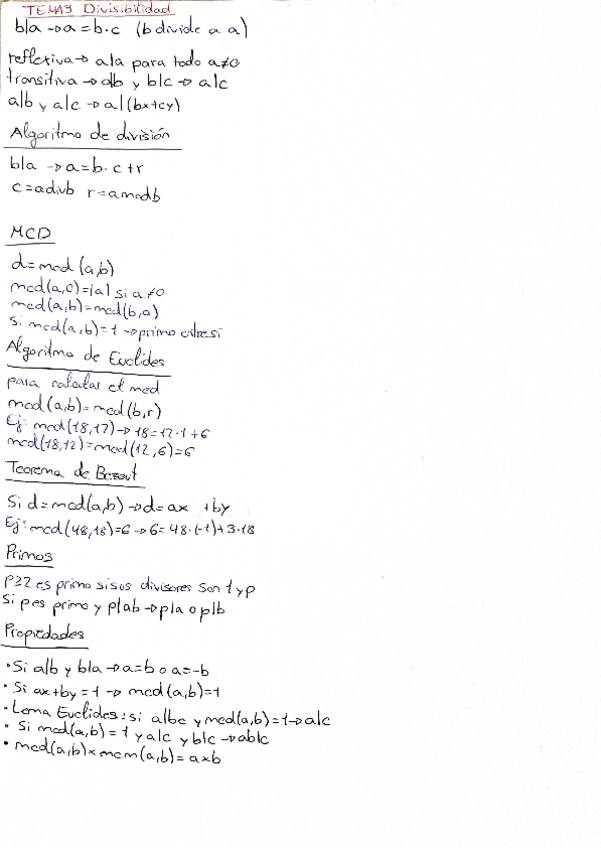 TEMA3 Divisibilidad
b|a → a=b·c (b divide a a)
reflexiva → a|a para todo a≠0
transitiva → a|b y b|c → a|c
a|b y a|c → a|(bx+cy)
Algoritmo de división
b|a → a=b·c+r
c=adivb r=amodb
MCD
d=mcd(a,b)
mcd(a,0)=|a| si a≠0
mcd(a,b)=mcd(b,a)
Si mcd(a,b)=1 → primo entre si
Algoritmo de Euclides
para calcular el mcd
mcd(a,b)=mcd(b,r)
Ej: mcd(18,12) → 18=12·1+6
mcd(18,12)=mcd(12,6)=6
Teorema de Bezout
Si d=mcd(a,b) → d=ax+by
Ej: mcd(48,18)=6 → 6=48·(-1)+3·18
Primos
P≥2 es primo si sus divisores son 1 y p
Si p es primo y p|ab → p|a o p|b
Propiedades
• Si a|b y b|a → a=b o a=-b
• Si ax+by=1 → mcd(a,b)=1
• Lema Euclides: si a|bc y mcd(a,b)=1 → a|c
• Si mcd(a,b)=1 y a|c y b|c → ab|c
• mcd(a,b)×mcm(a,b)=a×b